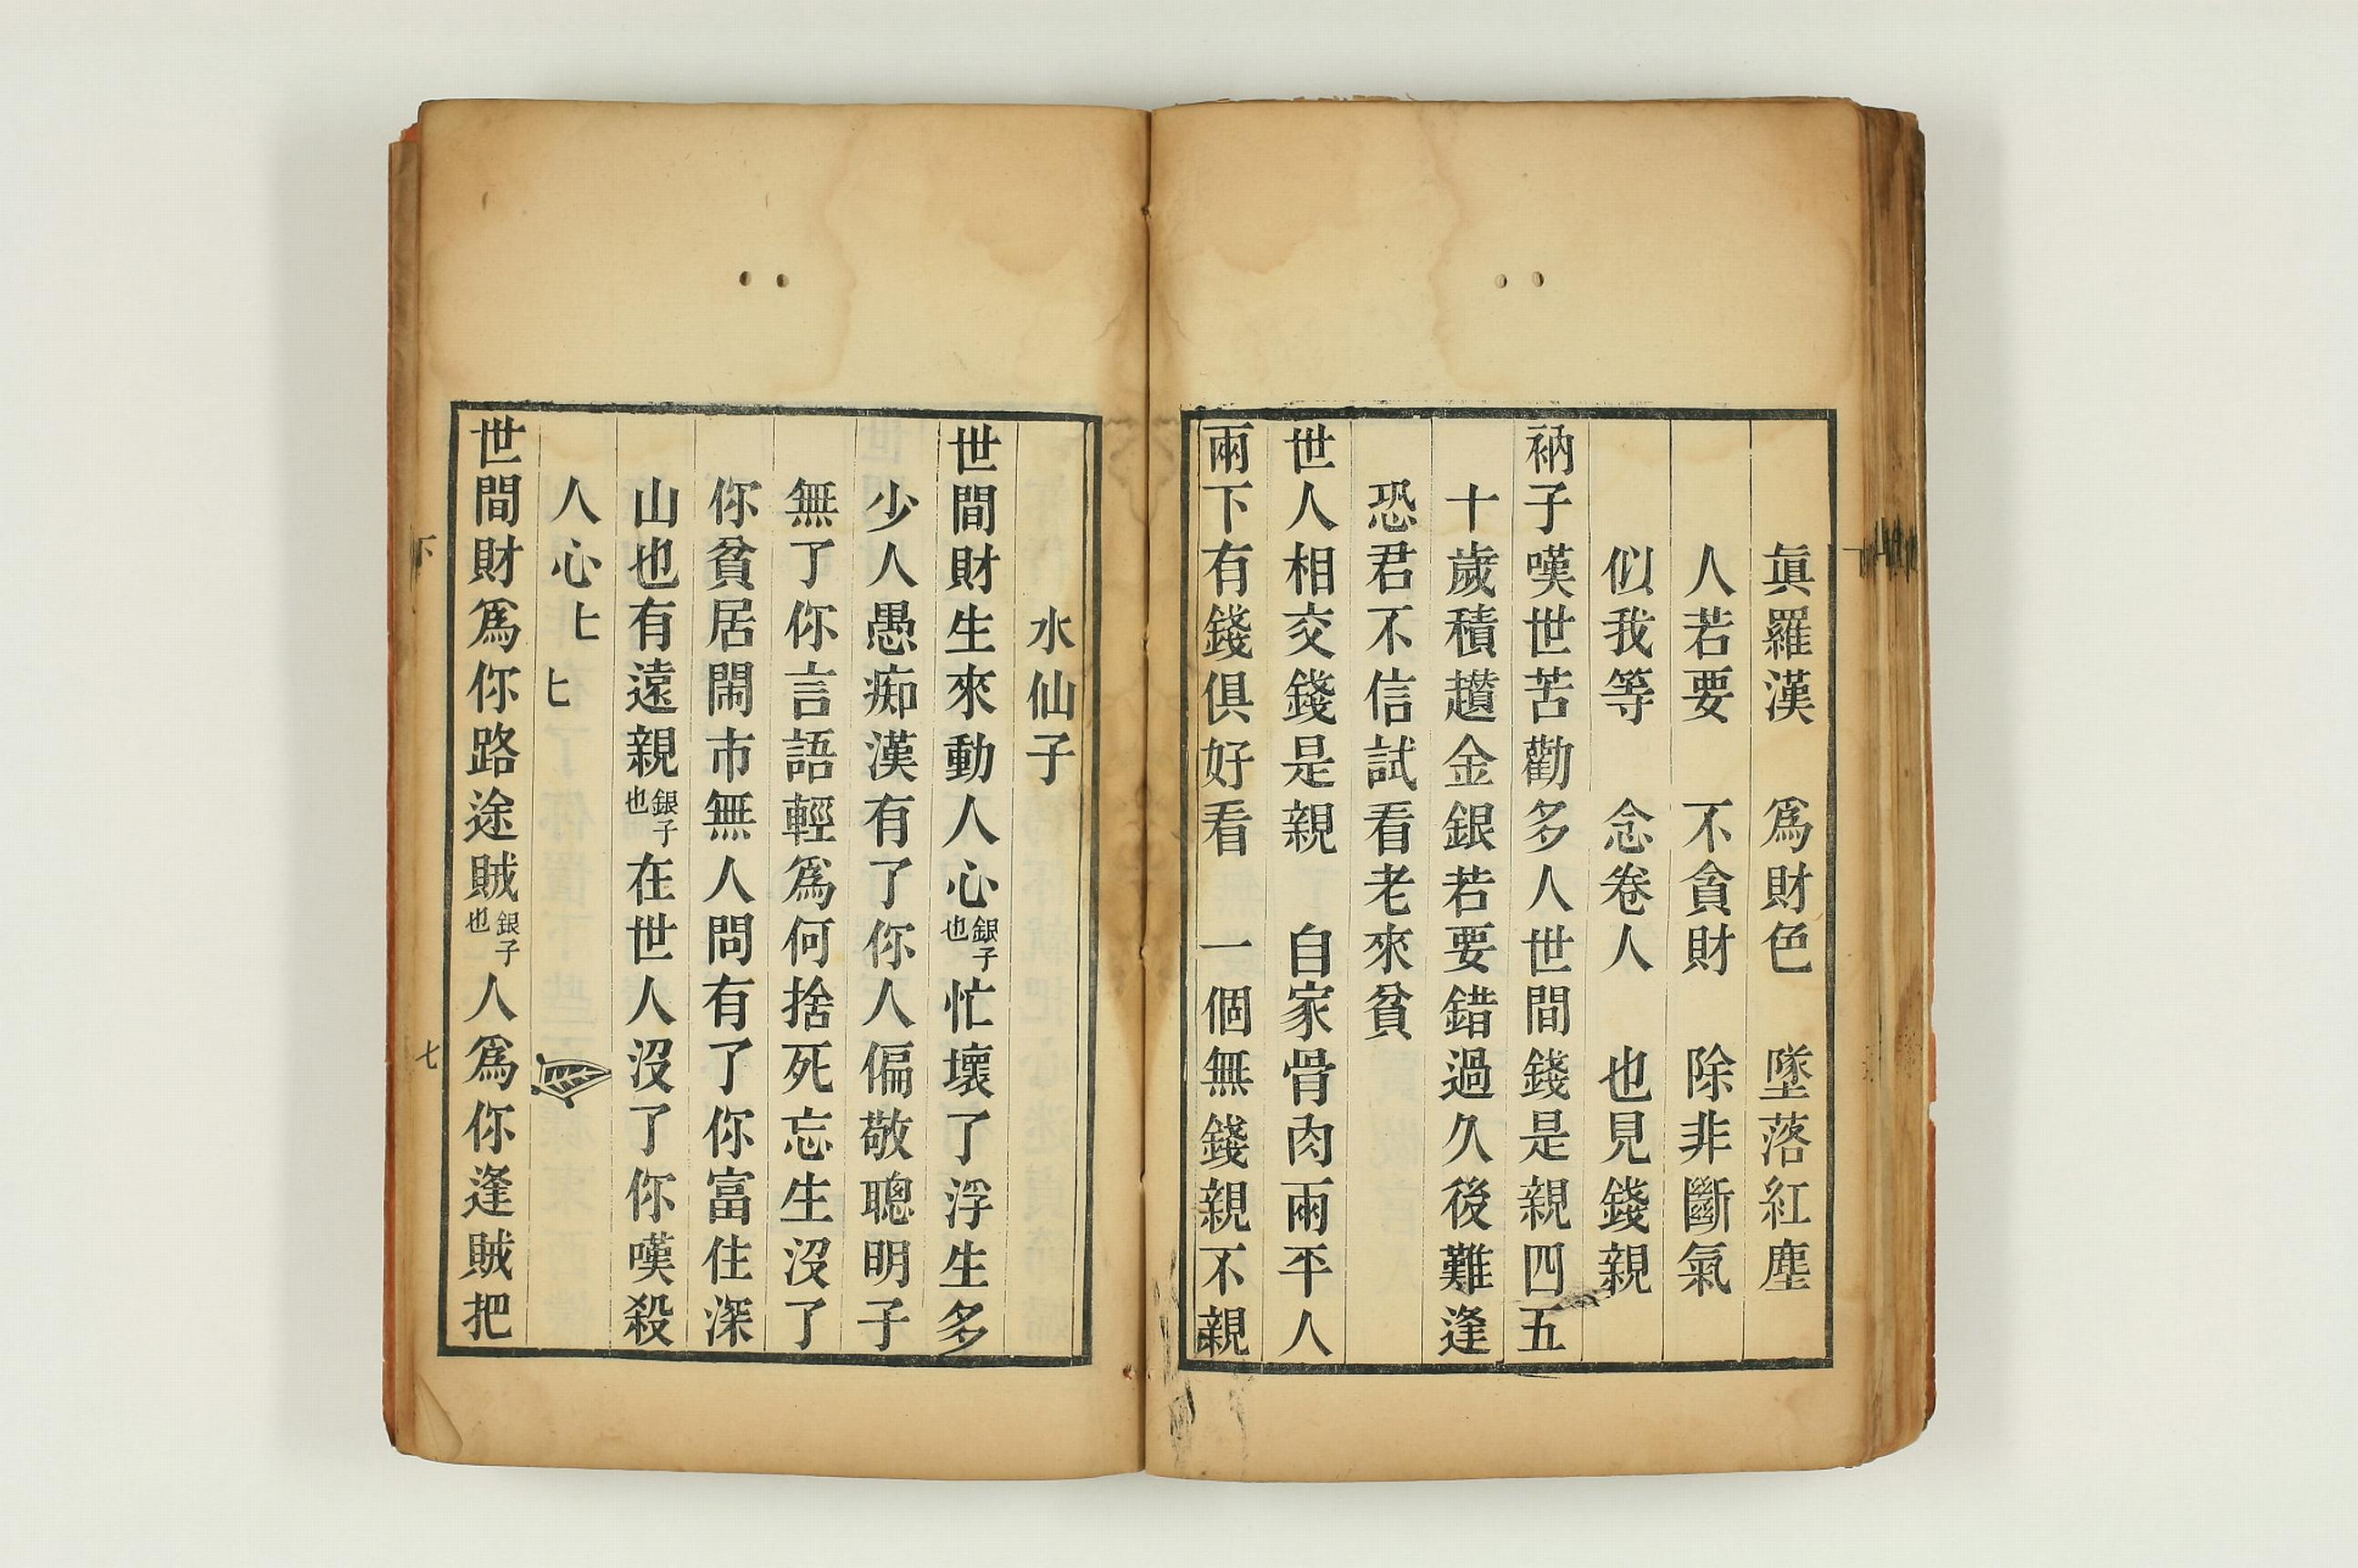 眞羅漢　爲財色　墜落紅塵
人若要　不貪財　除非斷氣
似我等　念卷人　也見錢親
衲子嘆世苦勸多人世間錢是親四五
十歲積趲金銀若要錯過久後難逢
恐君不信試看老來貧
世人相交錢是親　自家骨肉兩平人
兩下有錢俱好看　一個無錢親不親
水仙子
世間財生來動人心銀子也忙壞了浮生多
少人愚痴漢有了你人偏敬聰明子
無了你言語輕爲何捨死忘生沒了
你貧居鬧市無人問有了你富住深
山也有遠親銀子也在世人沒了你嘆殺
人心𠤎𠤎
世間財爲你路途賊銀子也人爲你逢賊把
下
七